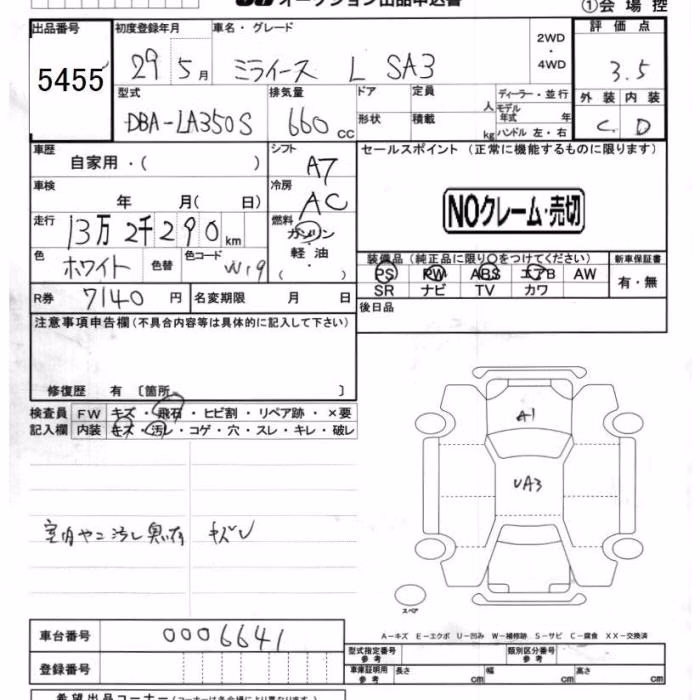 オークション出品申込書 ①会場控
出品番号 初度登録年月 車名・グレード 2WD ・ 4WD 評価点
5455 29 5月 ミライース L SA3 3.5
型式 排気量 ドア 定員 人 ディーラー・並行 外装 内装
DBA-LA350S 660 cc 形状 積載 kg モデル年式 年 ハンドル 左・右 C D
車歴 シフト セールスポイント (正常に機能するものに限ります)
自家用・( ) A7
車検 冷房
年 月( 日) AC NOクレーム・売切
走行 燃料
13万2千290km ガソリン・軽油・( )
装備品(純正品に限り○をつけてください) 新車保証書
色 ホワイト 色替 色コード W19 PS PW ABS エアB AW 有・無
SR ナビ TV カワ
R券 7140円 名変期限 月 日 後日品
注意事項申告欄(不具合内容等は具体的に記入して下さい)
修復歴 有 〔箇所 〕
検査員 FW キズ・飛石・ヒビ割・リペア跡・×要
記入欄 内装 キズ・汚レ・コゲ・穴・スレ・キレ・破レ
A1
UA3
室内ヤニ汚レ臭有 キズレ
スペア
A-キズ E-エクボ U-凹み W-補修跡 S-サビ C-腐食 XX-交換済
車台番号 0006641
型式指定番号 参考 類別区分番号 参考
登録番号 車庫証明用 参考 長さ cm 幅 cm 高さ cm
希望出品コーナー(コーナーは各会場により異なります。)